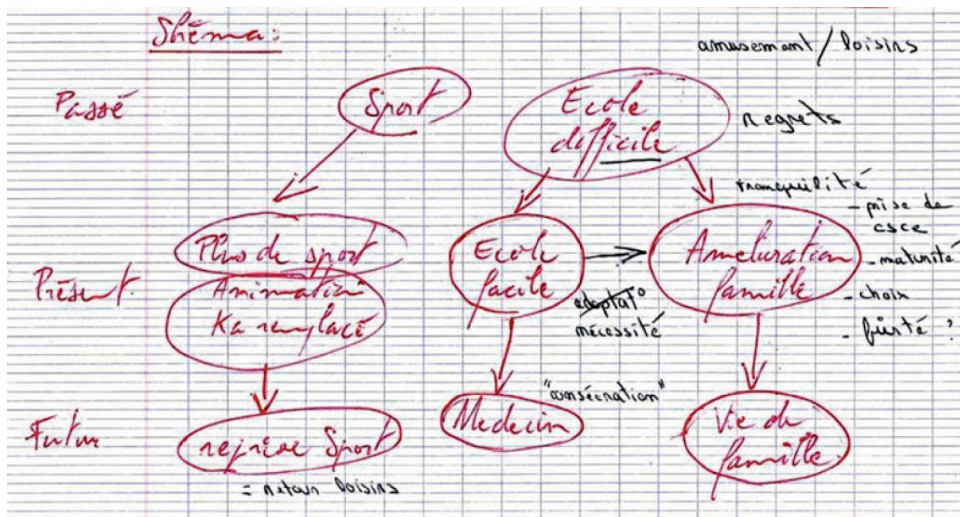 Shéma:
amusement / loisirs
Passé
Sport
Ecole
difficile
regrets
tranquilité
Présent
Plus de sport
Animation
Ka remplacé
Ecole
facile
adaptat°
nécessité
Amélioration
famille
- prise de
csce
- maturité
- choix
Futur
reprise Sport
= retour loisirs
Medecin
"consécration"
Vie de
famille